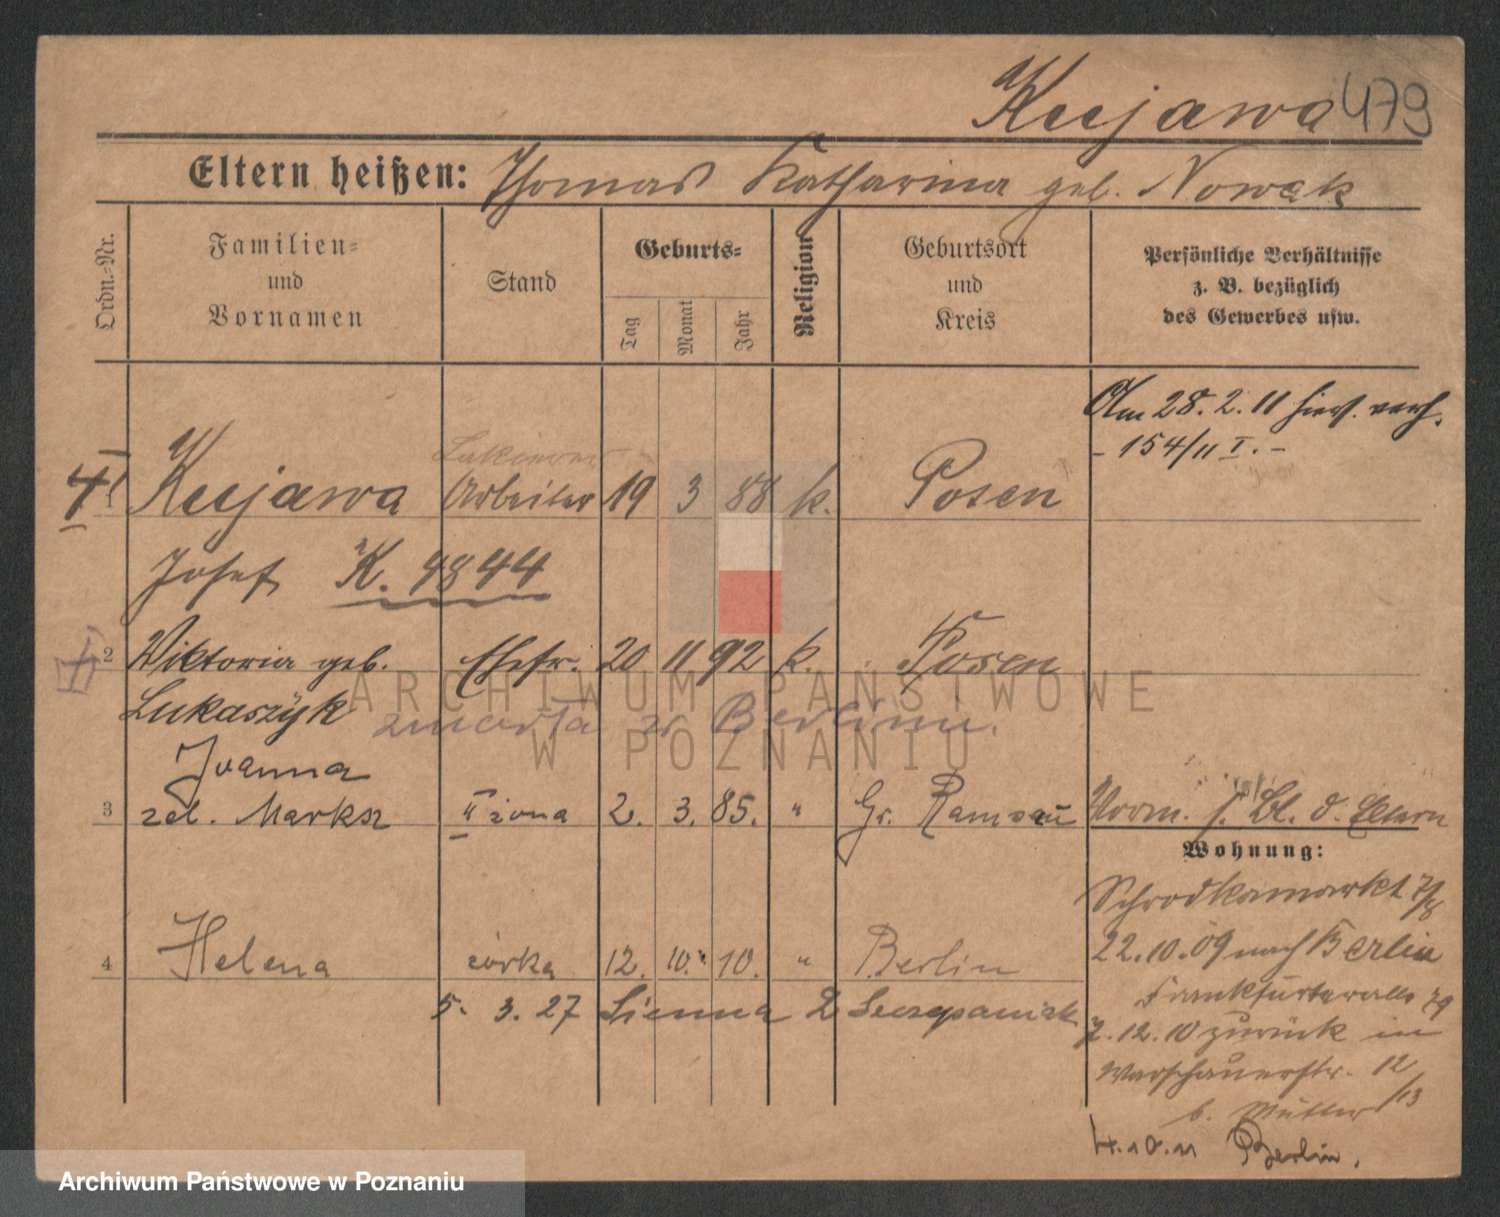 Kujawa 479
Eltern heißen: Thomas Katharina geb. Nowak
Ordn.=Nr.
Familien=
und
Vornamen
Stand
Geburts=
Tag
Monat
Jahr
Religion
Geburtsort
und
Kreis
Persönliche Verhältnisse
z. B. bezüglich
des Gewerbes usw.
Am 28. 2. 11 hies. verh.
- 154/11 I. -
1 Kujawa Arbeiter 19 3 88 k. Posen
Josef K. 9844
2 Viktoria geb. Ehefr. 20 11 92 k. Posen
Lukaszyk zmarła w Berlinie.
Joanna
3 zd. Marksz II żona 2. 3. 85. " Gr. Ramsau Vorm. s. Bl. d. Eltern
Wohnung:
Schrodkamarkt 7/8
4 Helena córka 12. 10. 10. " Berlin
22.10.09 nach Berlin
Frankfurterallee 79
5. 3. 27 Sienna 2 Szczepaniak
2.12.10 zurück in
Warschauerstr. 12/13
b. Mutter
4.10.11 Berlin.
ARCHIWUM PAŃSTWOWE
W POZNANIU
Archiwum Państwowe w Poznaniu